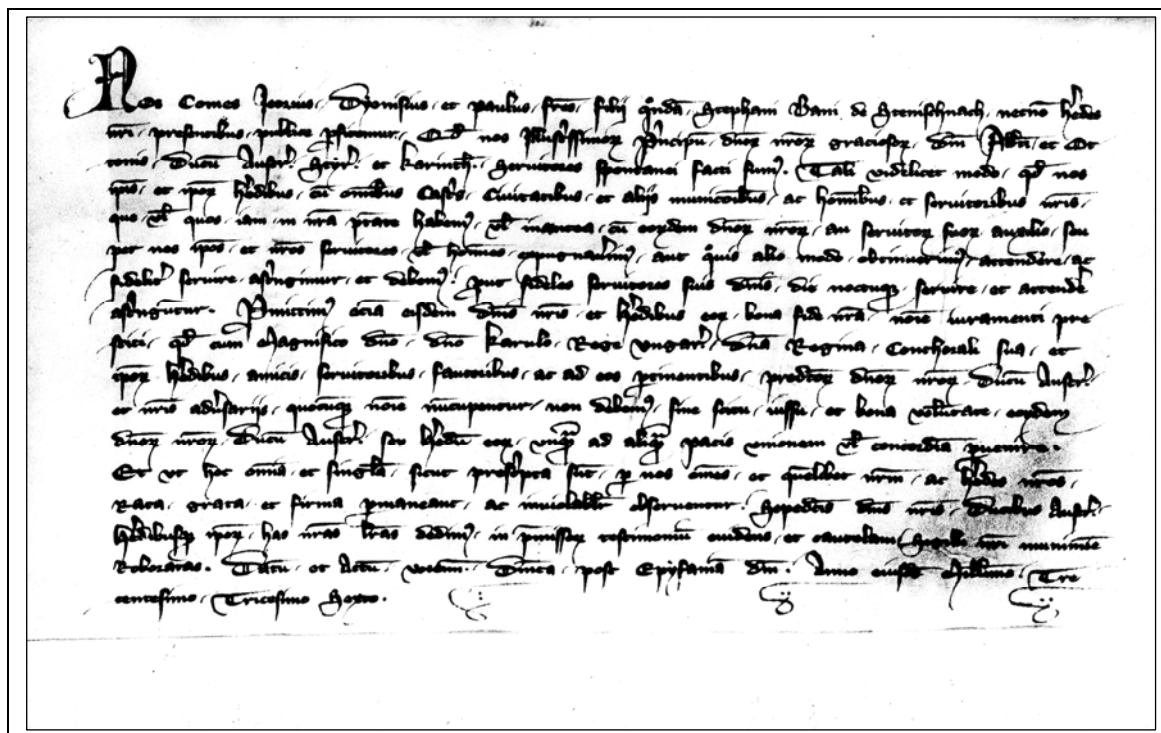 Nos Comes Johannes, Dyonisius, et paulus, fres, filij qndā, Stephani Bani de Stenischnach, necnō hedes
nri, presentibus, publice pfitemur, Qd nos Illustrissimorꝫ Pncipū dnorꝫ nrorꝫ graciosorꝫ, dni Alb̄ti, et Ot
tonis, Ducū Austr. Styr. et Karinth. Servitores spontanei facti sumꝰ. Tali videlicet modo, qd nos
ipis, et ipoꝫ hedibus, cū omibus Castris, Civitatibus, et alijs municoibus, ac homībus, et servitoribus nris,
que vl quos, iam, in nra ptate habemꝰ, vl inantea, cū eorūdem dnorꝫ nrorꝫ, au servitorꝫ suorꝫ auxilio, seu
per nos ipos, et nros servitores, vl hoīnes, expugnavimꝰ, aut qvis alio modo, obtinuerimꝰ, attendere, ac
fidelit servire, astringimur, et debemꝰ, put fideles servitores suis dnis, die noctuqꝫ, servire, et attendē
astringūtur. Pmittimꝰ eciā eisdem dnis nris, et hedibus eorꝫ, bona fide nra, noīe iuramenti pre
stiti, qd cum Magnifico dno, dno Karulo, Rege Ungari, dna Regina, Conthorali sua, et
ipoꝫ hedibus, amicis, servitoribus, fautoribus, ac ad eos ptinentibus, predictorꝫ dnorꝫ nrorꝫ Ducū Austr.
et nris adūsarijs, quocūqꝫ noīe nūcupentur, non debemꝰ, sine scitu, iussu, et bona volūtate, eorūdem
dnorꝫ nrorꝫ, Ducū Austr. seu hedū eorꝫ, unqꝫ ad aliqꝫ pacis unionem vl concordiā pvenire.
Et ut hec omīa, et singla, sicut prescipta sūt, p nos omes, et quelibet nrm, ac hedes nros,
Rata, grata, et firma pmaneant, ac inviolabilr observentur. Sepedictis dnis nris, Ducibus Austr.
hedibusqꝫ ipoꝫ, has nras lras dedimꝰ, in pmissorꝫ testimoniū evidens, et cautelam, Sigillo nri munimīe
Roboratas. Datū et Actū, Dnica, post Epyfaniā dni. Anno eiusdē Millimo, Tre
centesimo, Tricesimo Sexto.